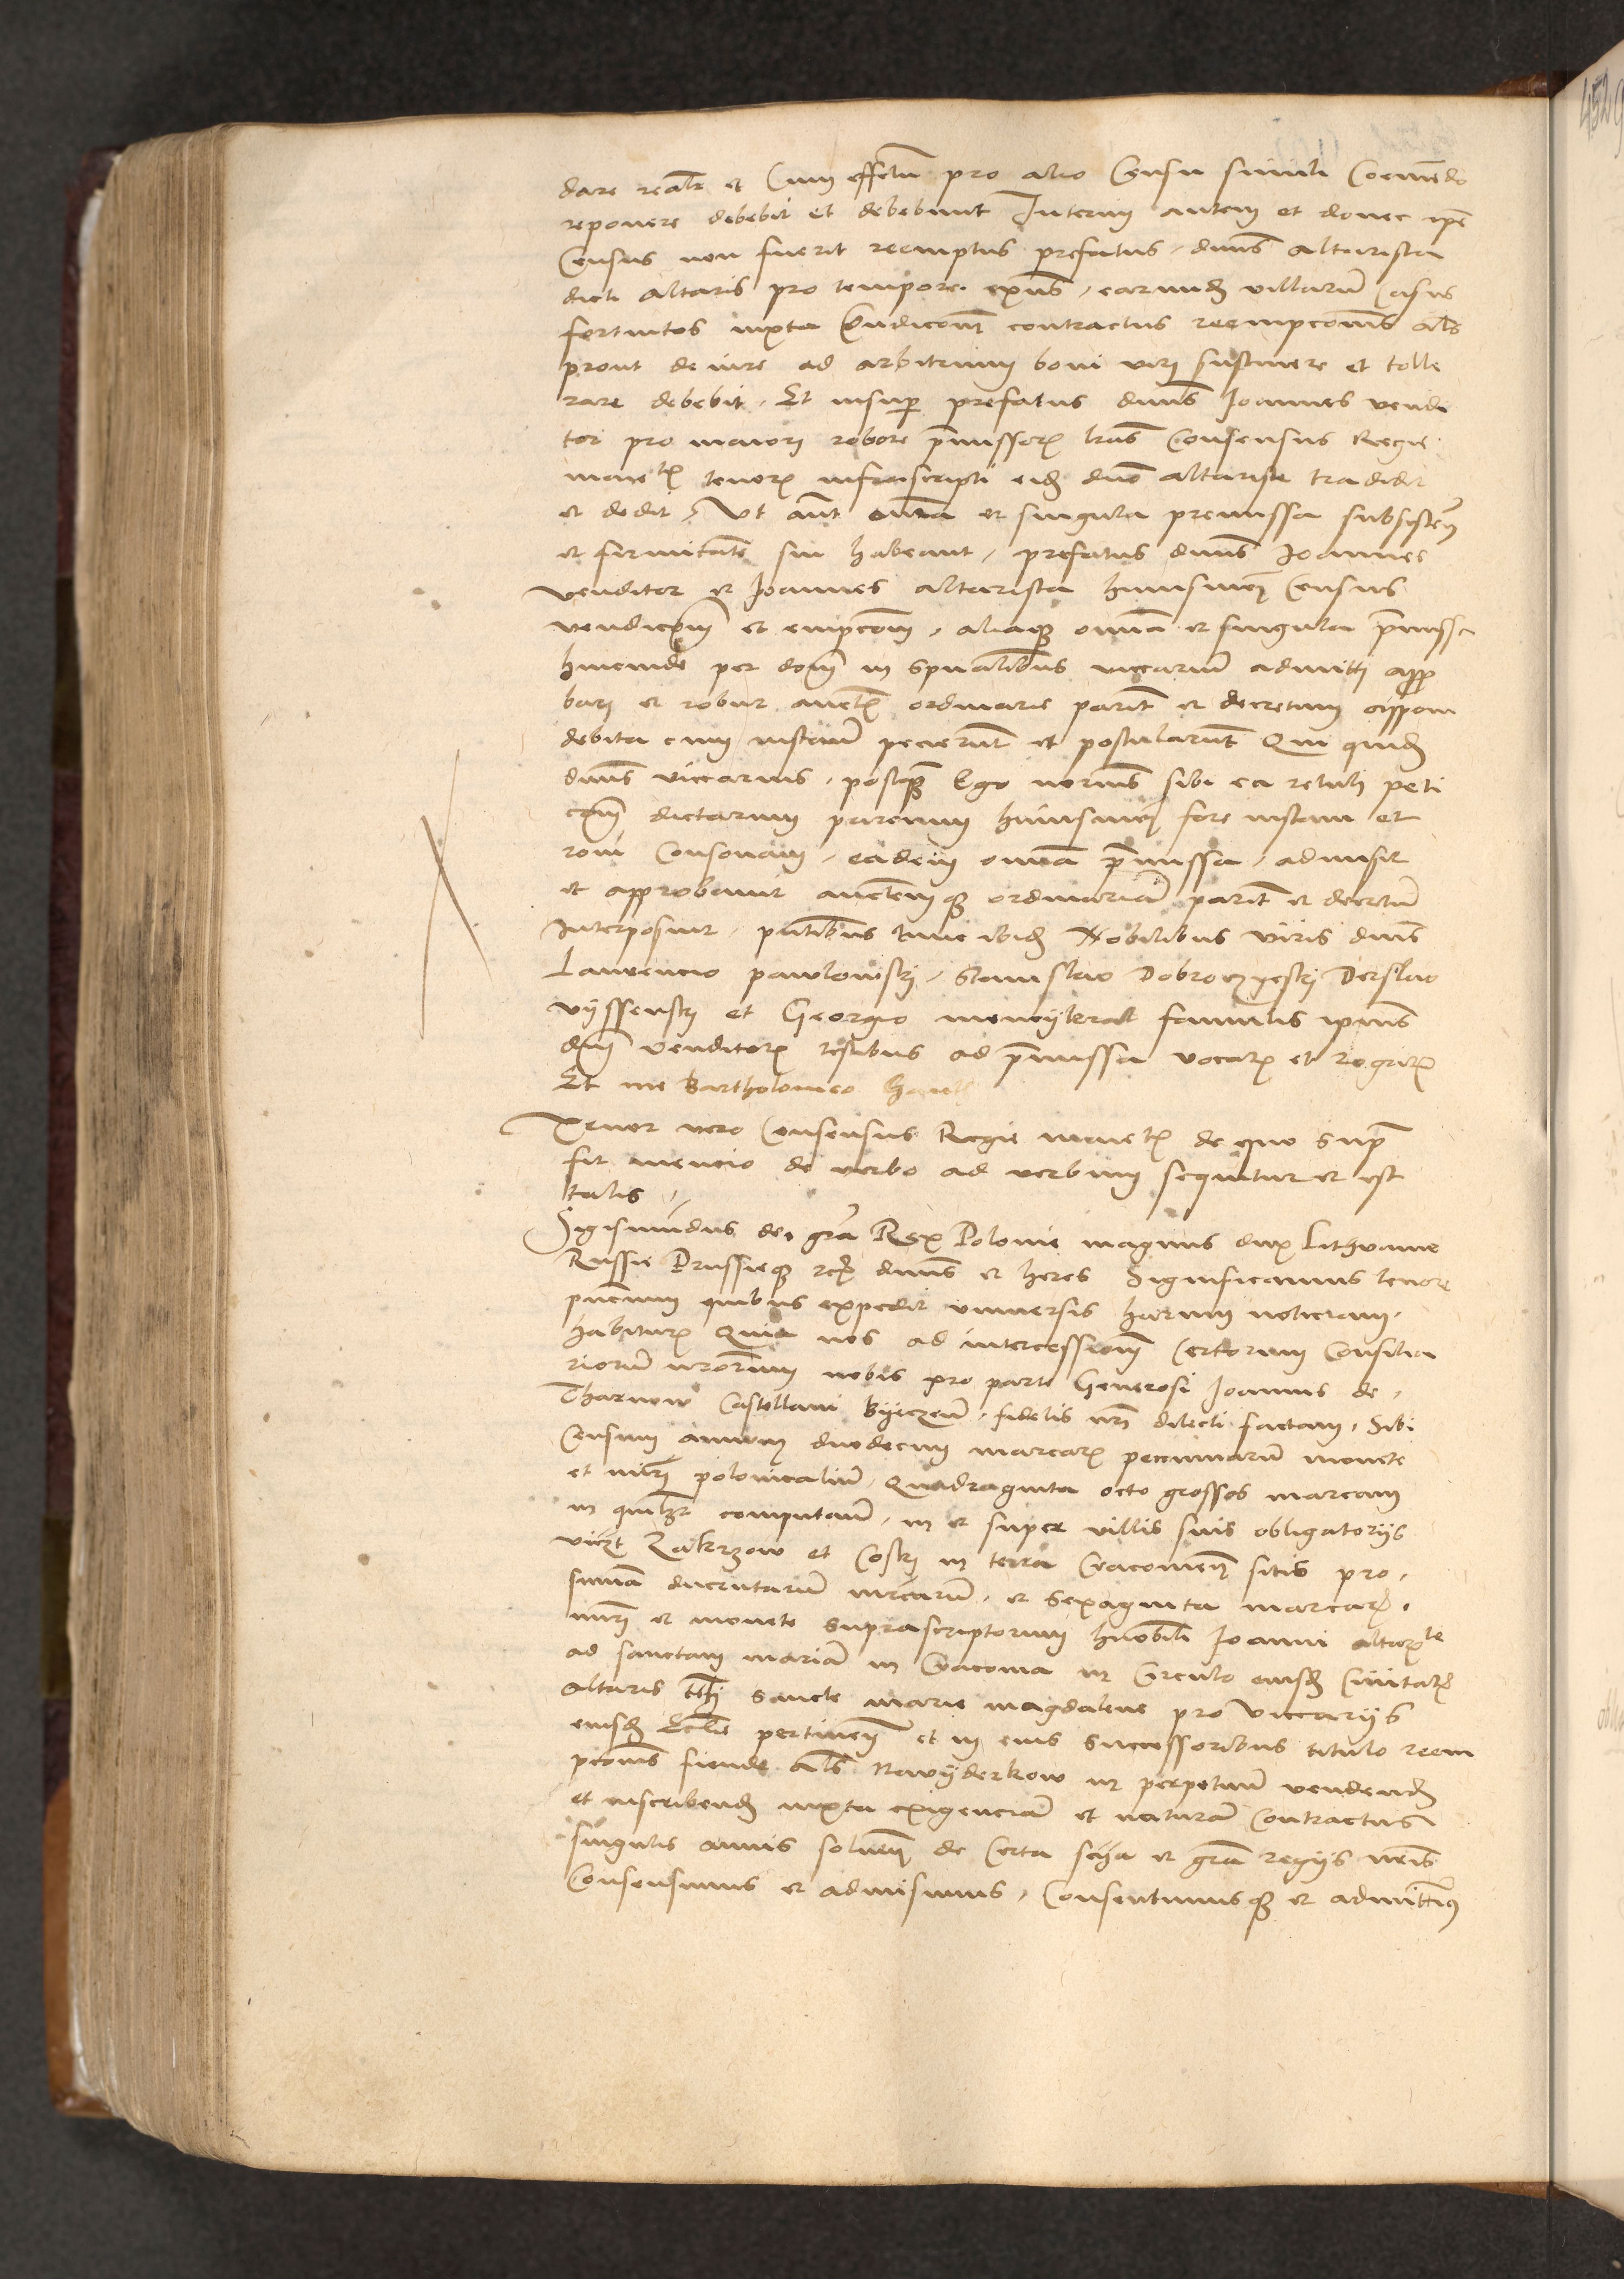 dare realr et Cum effectu pro alio Censu simili Coemendo
reponere debebit et debebunt Interim autem et donec ipe
Census non fuerit reemptus prefatus dnus altarista
dicti altaris pro tempore exns, earund villaru Casus
fortuitos iuxta Condicoem contractus reempcionis als
prout de iure ad arbitrium boni viri sustinere et tolle
rare debebit. Et insup prefatus dnus Joannes vendi
tor pro maiori robore pmissor lras Consensus Regie
maiestr tenoris infrascripti eid dno altariste tradidit
et dedit, Ut aut omia et singula premissa subsisten
et firmitate sui habeant, prefatus dnus Joannes
venditor et Joannes altarista huiusmoi Census
vendicom et empcom, aliaq omia et singula pmissa
huiusmoi per dom in spualibus viccariu admitti appro
bari et robur auctr ordinarie parit et decretum
debita cum instan pecierut et postularut Qui quid
dnus viccarius, postq Ego norius sibi ea retuli peti
com dictarum parcium huiusmoi fore iustam et
roni Consonam, eadem omia pmissa, admisit
et approbauit auctemq ordinaria parit et decretu
Interposuit, pntibus tunc ibid Nobilibus viris dnis
Laurencio pawlowski, Stanislao Dobroczyeski Derslao
vyssenski et Georgio famulis ipius
dni venditoris testibus ad pmissa vocatis et rogatis
Et me Bartholomeo
Tenor vero Consensus Regie maiestr de quo supra
fit mencio de verbo ad verbum sequitur et est
talis,
Sigismudus dei gra Rex Polonie magnus dux Lithuanie
Russie Prussieq etc dnus et heres Significamus tenore
pncium quibus expedit vniuersis harum noticiam
habituris Quia nos ad intercessionem Certorum Consilia
rioru nrorum nobis pro parte Generosi Joannis de
Tharnow Castellani Byeczen, fidelis nri dilecti factam, Sibi
Censum annuu duodecim marcar pecuniaru monete
et nuri polonicaliu, Quadraginta octo grossos marcam
in qualibet computan, in et super villis suis obligatoriis
vicz Zakrzow et Coski in terra Cracouien sitis pro
suma ducentaru mrcaru, et sexaginta marcar
nuri et monete suprascriptorum honobili Joanni altriste
ad sanctam maria in Cracouia in Circulo eiusd Ciuitatis
altaris tti sancte marie magdalene pro viccariis
eiusd Ecclie pertinen et in eius successoribus titulo reem
pcionis fiende als Nawyderkow in perpetuu vendend
et inscribend iuxta exigencia et natura Contractus
singulis annis soluen de Certa scia et gra regiis nris
Consensimus et admisimus, Consentimusq et admittim9